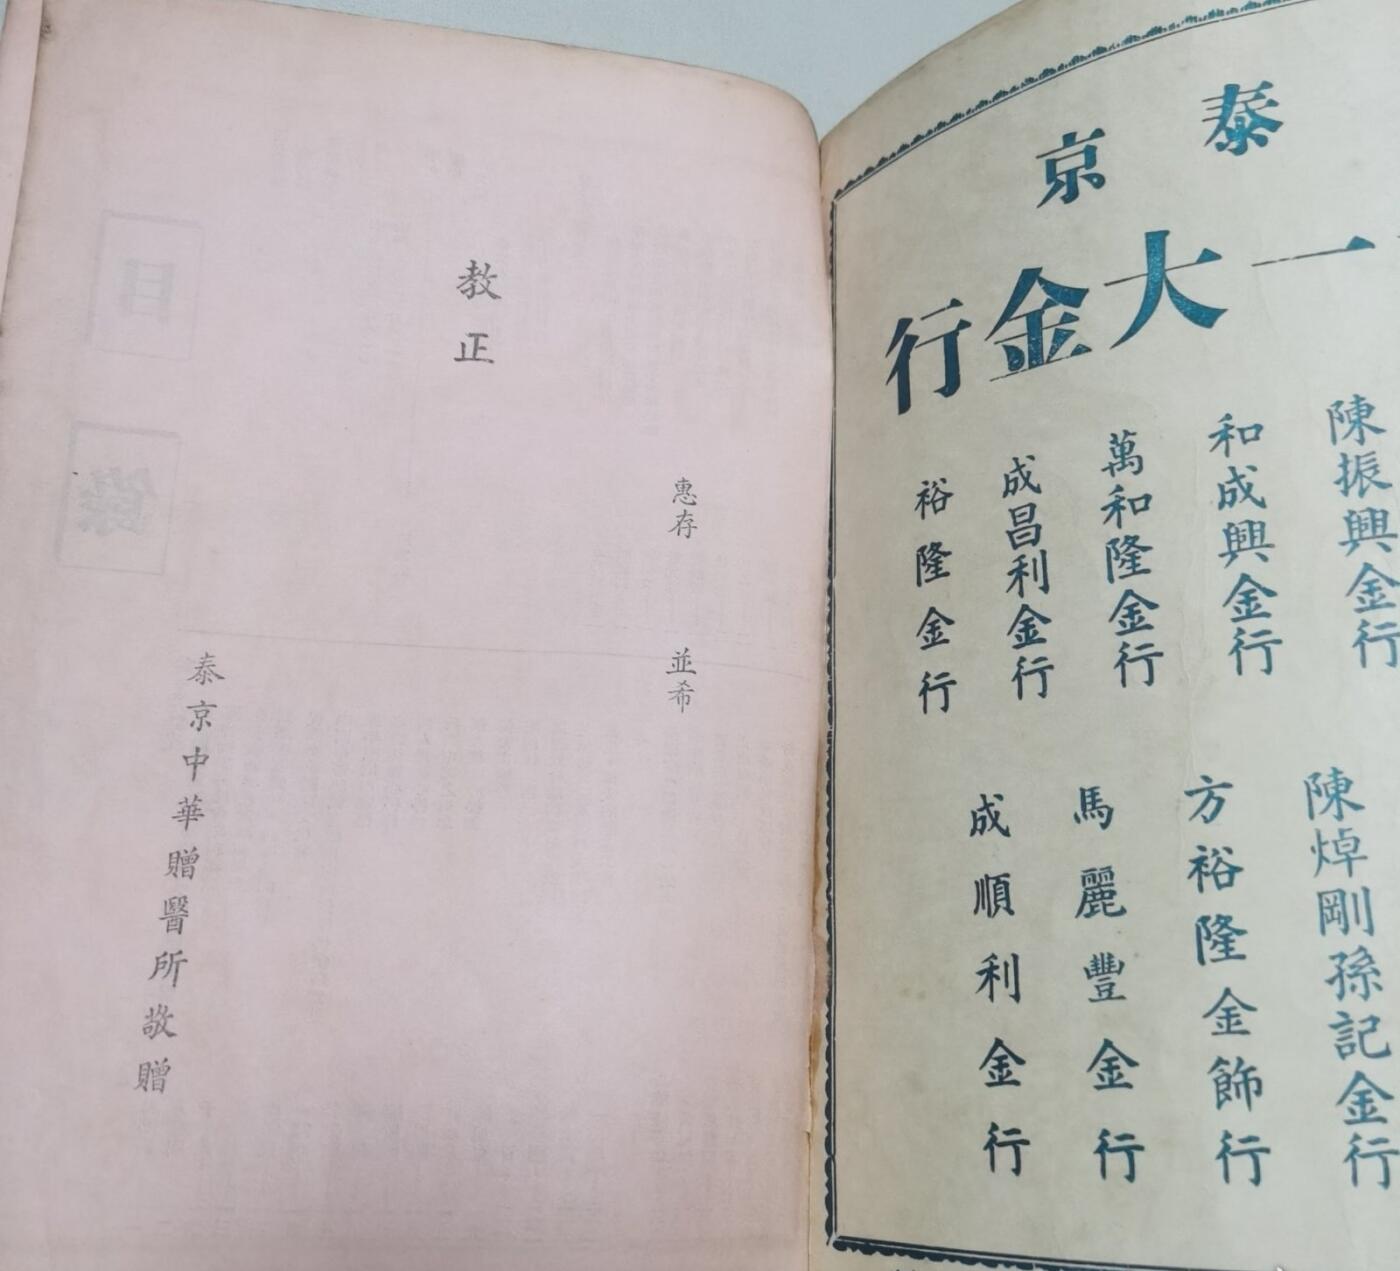 惠存
並希
教正
泰京中華贈醫所敬贈
泰京
一大金行
陳振興金行
和成興金行
萬和隆金行
成昌利金行
裕隆金行
陳焯剛孫記金行
方裕隆金飾行
馬麗豐金行
成順利金行